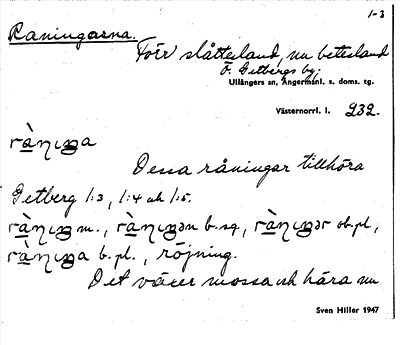 1-3
Raningarna.
Förr slåttesland, nu betesland
Ö. Getbergs by.
Ullångers sn, Ångermanl. s. doms. tg.
Västernorrl. l. 232.
rànₙŋa
Dessa råningar tillhöra
Getberg 1:3, 1:4 och 1:5.
m., b. sg, ob. pl,
b. pl., röjning.
Det växer mossa och hära nu
Sven Hiller 1947